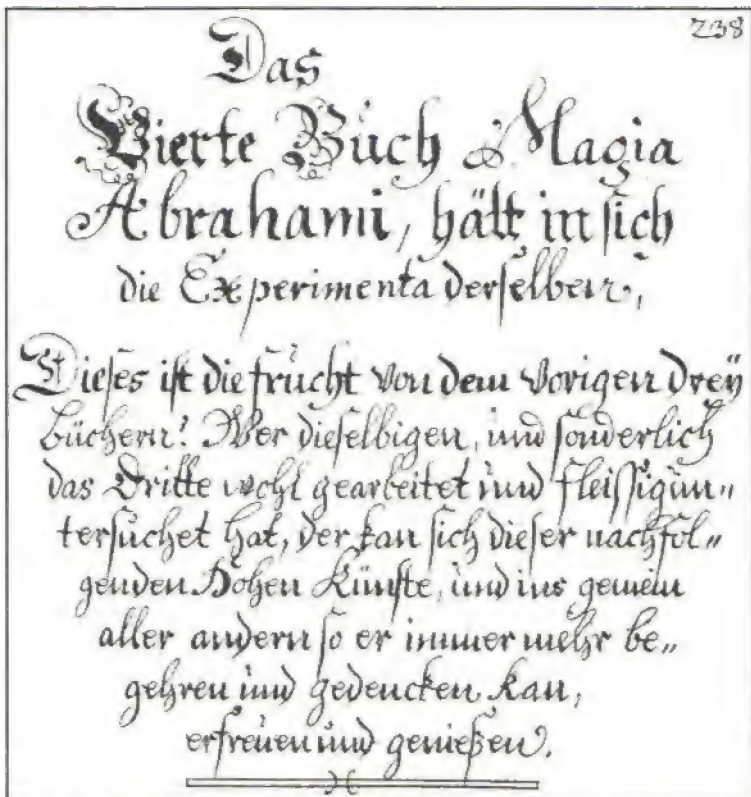 238
Das
Vierte Buch Magia
Abrahami, hält in sich
die Experimenta derselben,
Dieses ist die frucht von dem vorigen dreÿ
büchern! Wer dieselbigen, und sonderlich
das Dritte wohl gearbeitet und fleissig un„
tersuchet hat, der kan sich dieser nachfol„
genden Hohen Künste, und ins gemein
aller andern so er immer mehr be„
gehren und gedencken kan,
erfreuen und genießen.